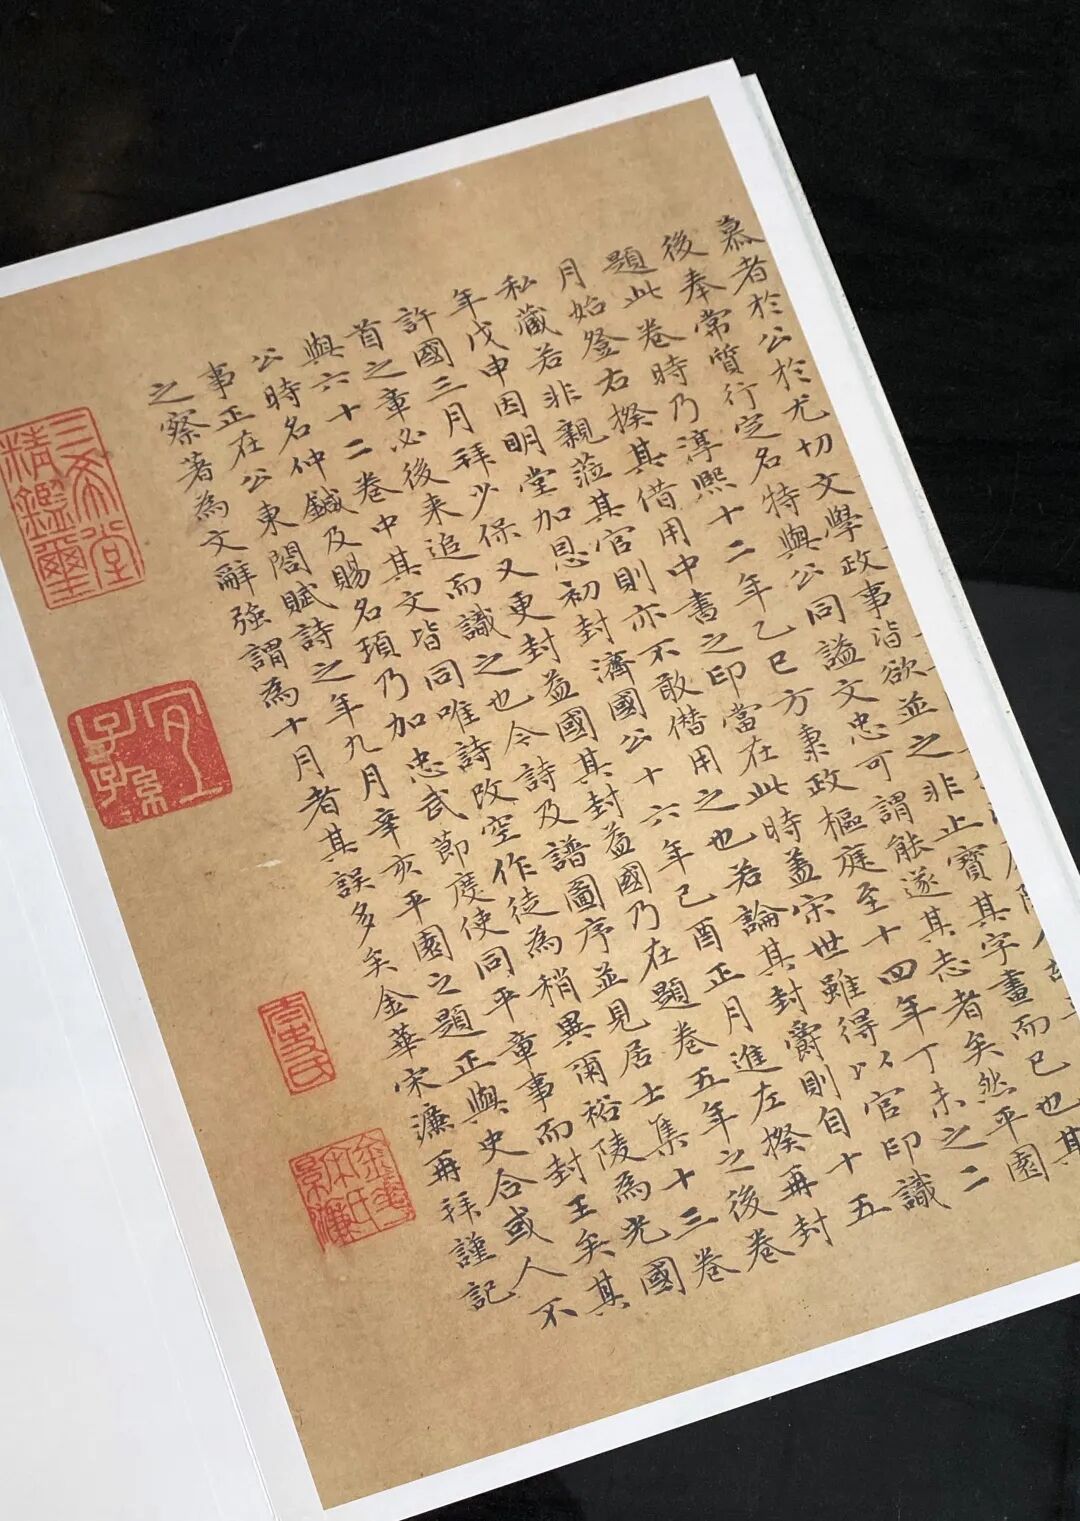 慕者於公於尤切文學政事皆欲並之非止寶其字畫而已也其
後奉常質行定名特與公同謚文忠可謂能遂其志者矣然平園
題此卷時乃淳熙十二年乙巳方秉政樞庭至十四年丁未之二
月始登右揆其借用中書之印當在此時蓋宋世雖得以官印識
私藏若非親蒞其官則亦不敢僭用之也若論其封爵則自十五
年戊申因明堂加恩初封濟國公十六年己酉正月進左揆再封
許國三月拜少保又更封益國其封益國乃在題卷五年之後卷
首之章必後来追而識之也今詩及譜圖序並見居士集十三卷
與六十二卷中其文皆同唯詩改空作徒為稍異爾裕陵為光國
公時名仲鍼及賜名頊乃加忠武節度使同平章事而封王矣其
事正在公東閤賦詩之年九月辛亥平園之題正與史合或人不
之察著為文辭強謂為十月者其誤多矣金華宋濂再拜謹記
三希堂精鑑璽
宜子孫
太史氏
金華宋氏景濂